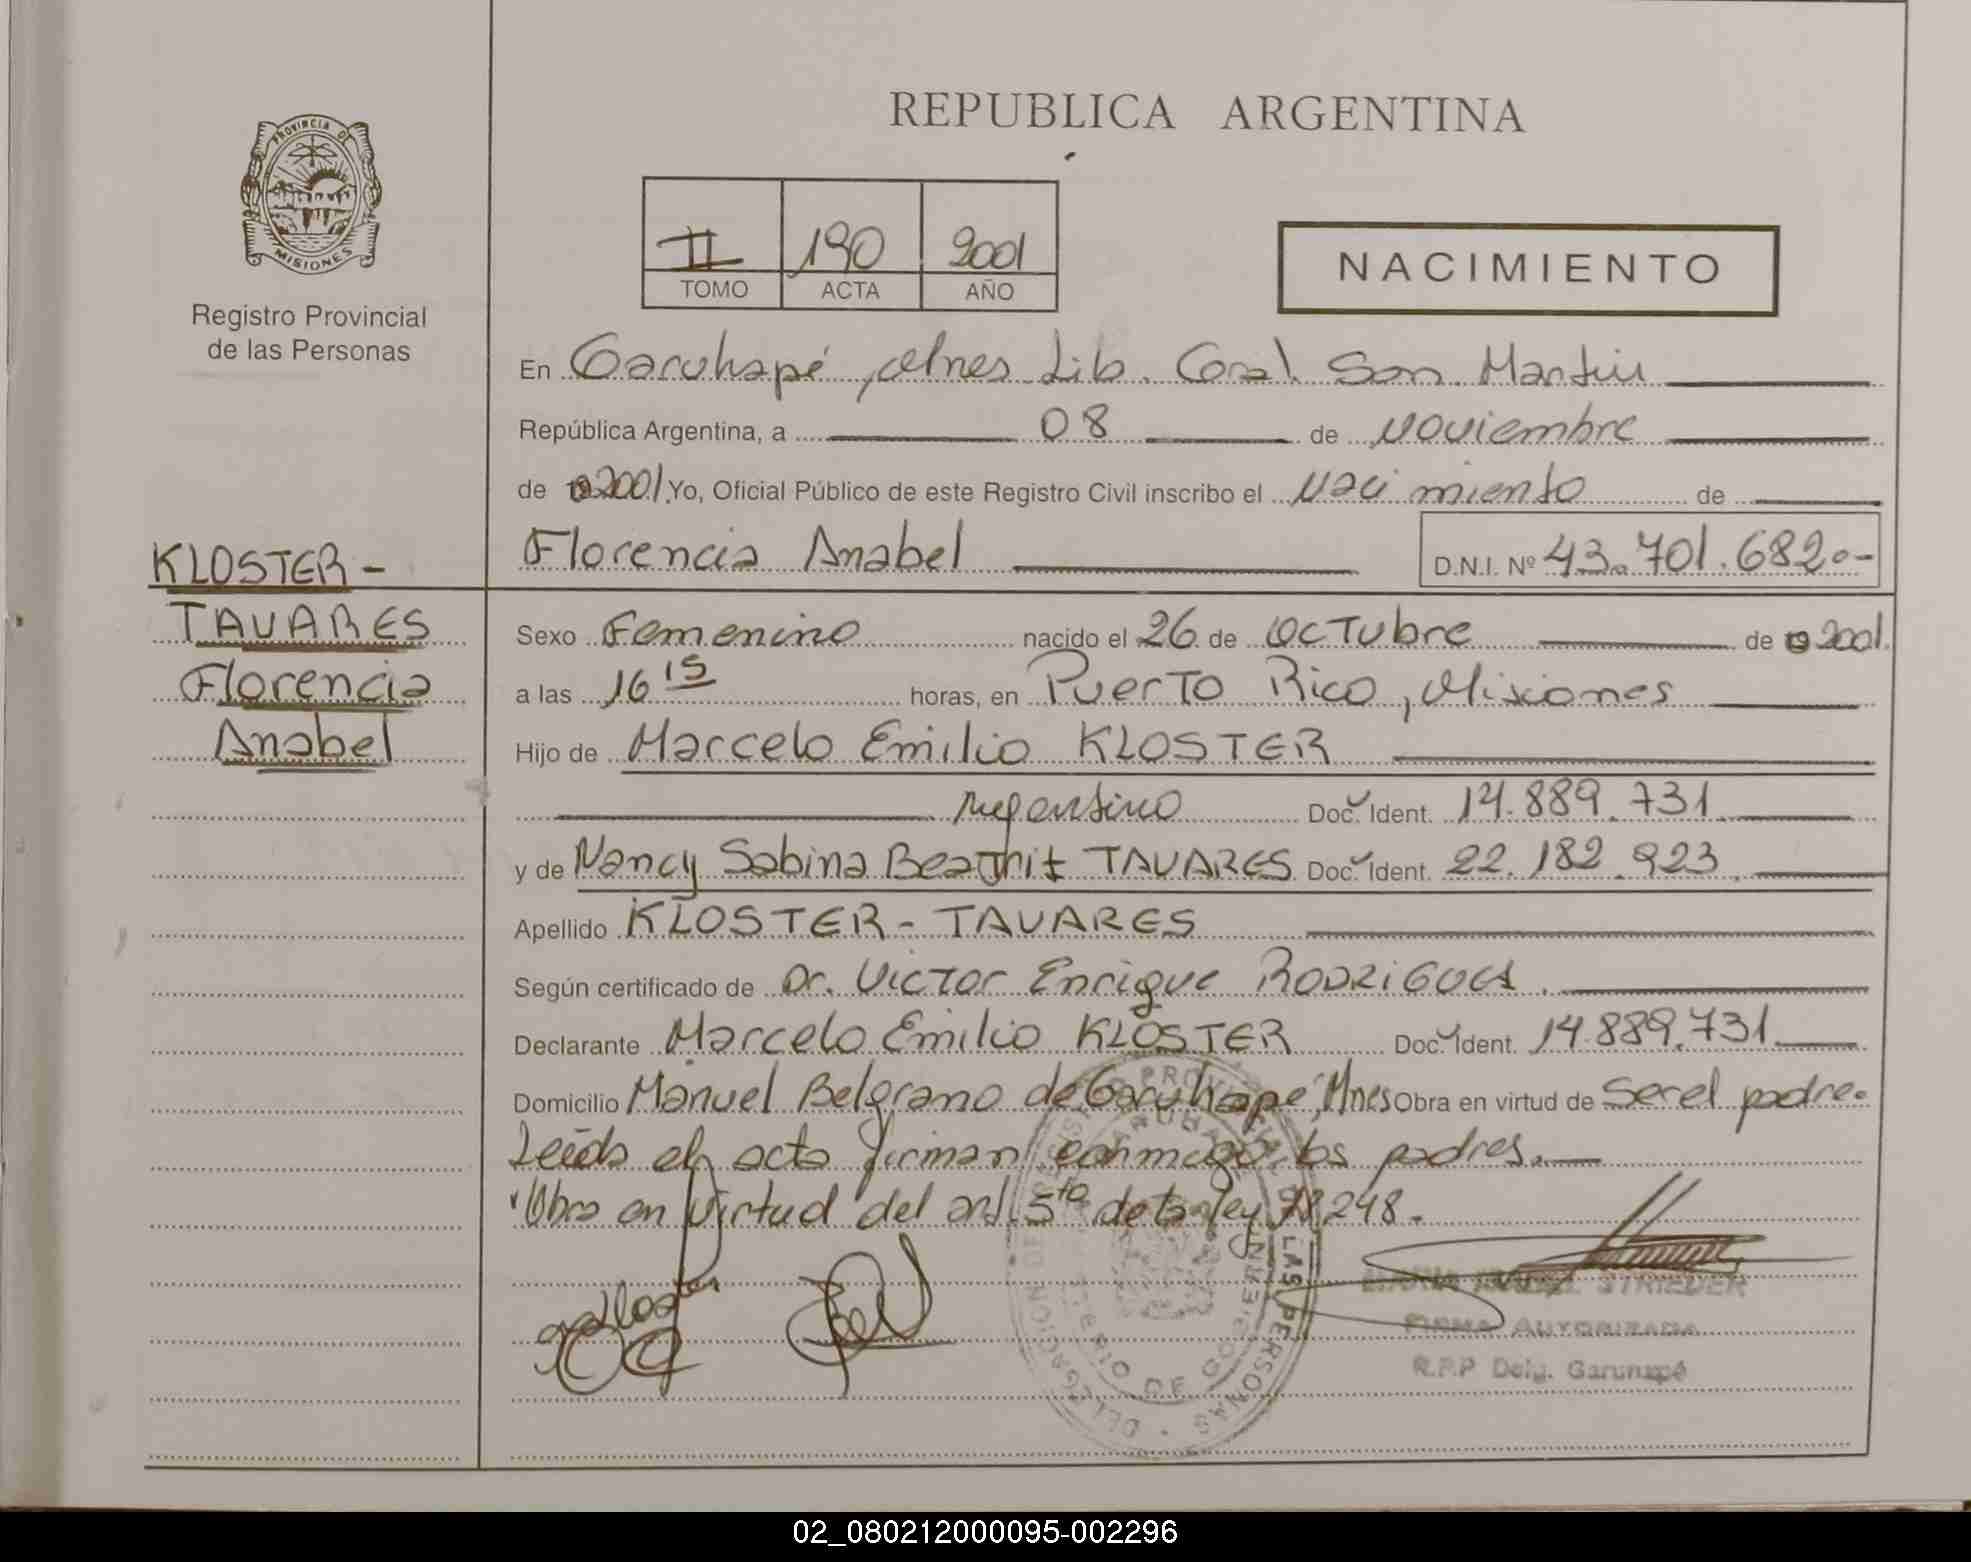 REPUBLICA ARGENTINA
PROVINCIA DE
MISIONES
Registro Provincial
de las Personas
II 190 2001
TOMO ACTA AÑO
NACIMIENTO
En Garuhapé, Mnes Lib. Gral. San Martín
República Argentina, a 08 de Noviembre
de 2001 Yo, Oficial Público de este Registro Civil inscribo el Nacimiento de
Florencia Anabel D.N.I. Nº 43.701.682.-
KLOSTER -
TAVARES
Florencia
Anabel
Sexo Femenino nacido el 26 de Octubre de 2001.
a las 16 15 horas, en Puerto Rico, Misiones
Hijo de Marcelo Emilio KLOSTER
Argentino Doc. Ident. 14.889.731
y de Nancy Sabina Beatriz TAVARES Doc. Ident. 22.182.923
Apellido KLOSTER - TAVARES
Según certificado de Dr. Victor Enrique RODRIGUES
Declarante Marcelo Emilio KLOSTER Doc. Ident. 14.889.731
Domicilio Manuel Belgrano de Garuhapé, Mnes Obra en virtud de Ser el padre.
Leída el acta firman conmigo los padres.
"Obra en virtud del art. 5to de la ley 18.248.
STRIEDER
FIRMA AUTORIZADA
R.P.P Deleg. Garuhapé
02_080212000095-002296